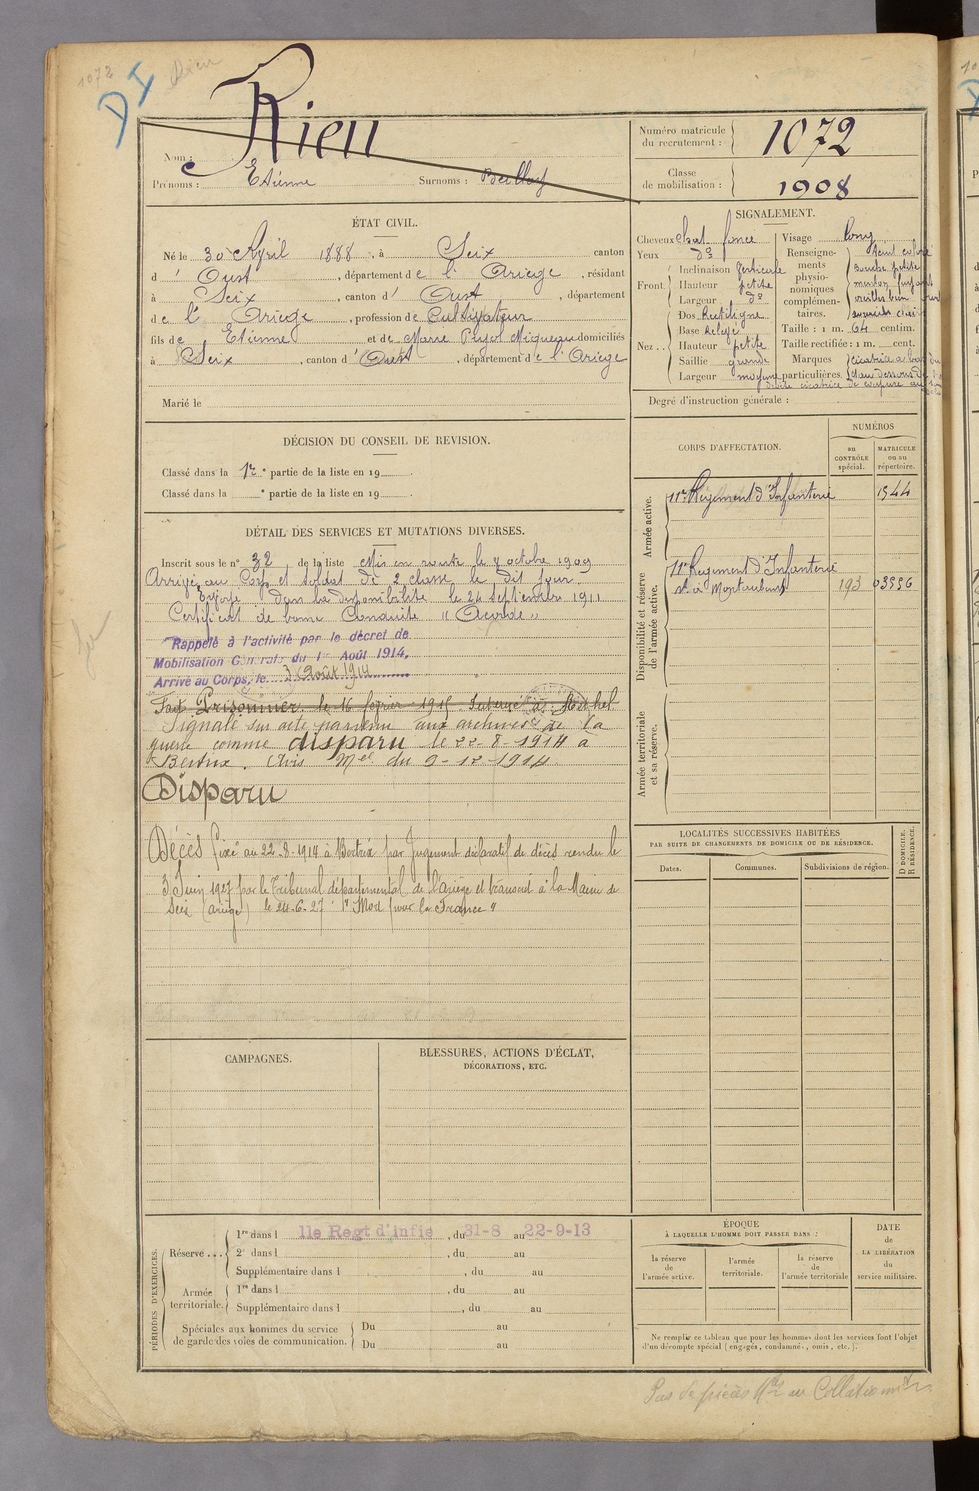 1072
Rieu
D I
Rieu
Nom :
Prénoms : Etienne Surnoms :
Numéro matricule du recrutement : 1072
Classe de mobilisation : 1908
ÉTAT CIVIL.
Né le 30 Avril 1888, à Seix canton
d' Oust, département de l'Ariège, résidant
à Seix, canton d' Oust, département
de l' Ariège, profession de Cultivateur
fils de Etienne et de Marie domiciliés
à Seix, canton d' Oust, département de l'Ariège
Marié le
SIGNALEMENT.
Cheveux chat. foncé
Yeux do
Front. Inclinaison Verticale
Hauteur petite
Largeur do
Nez . . Dos Rectiligne
Base Relevé
Hauteur petite
Saillie grande
Largeur moyenne
Visage Long
Renseignements physionomiques complémentaires. teint coloré
bouche petite
Taille : 1 m. 64 centim.
Taille rectifiée : 1 m. cent.
Marques particulières. cicatrice
droite cicatrice de coupure au
Degré d'instruction générale :
DÉCISION DU CONSEIL DE REVISION.
Classé dans la 1re partie de la liste en 19 .
Classé dans la e partie de la liste en 19 .
DÉTAIL DES SERVICES ET MUTATIONS DIVERSES.
Inscrit sous le n° 32 de la liste Mis en route le 7 octobre 1909
Arrivé au Corps et Soldat de 2e classe le dit jour.
dans la disponibilité le 24 septembre 1911
Certificat de bonne Conduite "Accordé"
Rappelé à l'activité par le décret de
Mobilisation Générale du 1er Août 1914.
Arrivé au Corps, le 3 Août 1914
Fait Prisonnier le 16 février 1915 Interné à
Signalé sur acte parvenu aux archives de la
guerre comme disparu le 22-8-1914 à
Bertrix. Avis Mel du 9-12-1914.
Disparu
Décès fixé au 22-8-1914 à Bertrix par Jugement déclaratif de décès rendu le
3 Juin 1927 par le Tribunal départemental de l'Ariège et transcrit à la Mairie de
Seix (Ariège) le 24-6-27 "Mort pour la France"
CORPS D'AFFECTATION.
NUMÉROS
au CONTRÔLE spécial.
MATRICULE ou au répertoire.
Armée active.
11e Régiment d'Infanterie 1544
Disponibilité et réserve de l'armée active.
11e Régiment d'Infanterie
à Montauban 193 03556
Armée territoriale et sa réserve.
LOCALITÉS SUCCESSIVES HABITÉES
PAR SUITE DE CHANGEMENTS DE DOMICILE OU DE RÉSIDENCE.
Dates.
Communes.
Subdivisions de région.
D DOMICILE.
R RÉSIDENCE.
CAMPAGNES.
BLESSURES, ACTIONS D'ÉCLAT,
DÉCORATIONS, ETC.
PÉRIODES D'EXERCICES.
Réserve . . . 1re dans l 11e Regt d'infie, du 31-8 au 22-9-13
2e dans l , du au
Supplémentaire dans l , du au
Armée territoriale. 1re dans l , du au
Supplémentaire dans l , du au
Spéciales aux hommes du service de garde des voies de communication. Du au
Du au
ÉPOQUE
À LAQUELLE L'HOMME DOIT PASSER DANS :
la réserve de l'armée active.
l'armée territoriale.
la réserve de l'armée territoriale
DATE
de
LA LIBÉRATION
du
service militaire.
Ne remplir ce tableau que pour les hommes dont les services font l'objet
d'un décompte spécial (engagés, condamnés, omis, etc.).
Pas de pièces